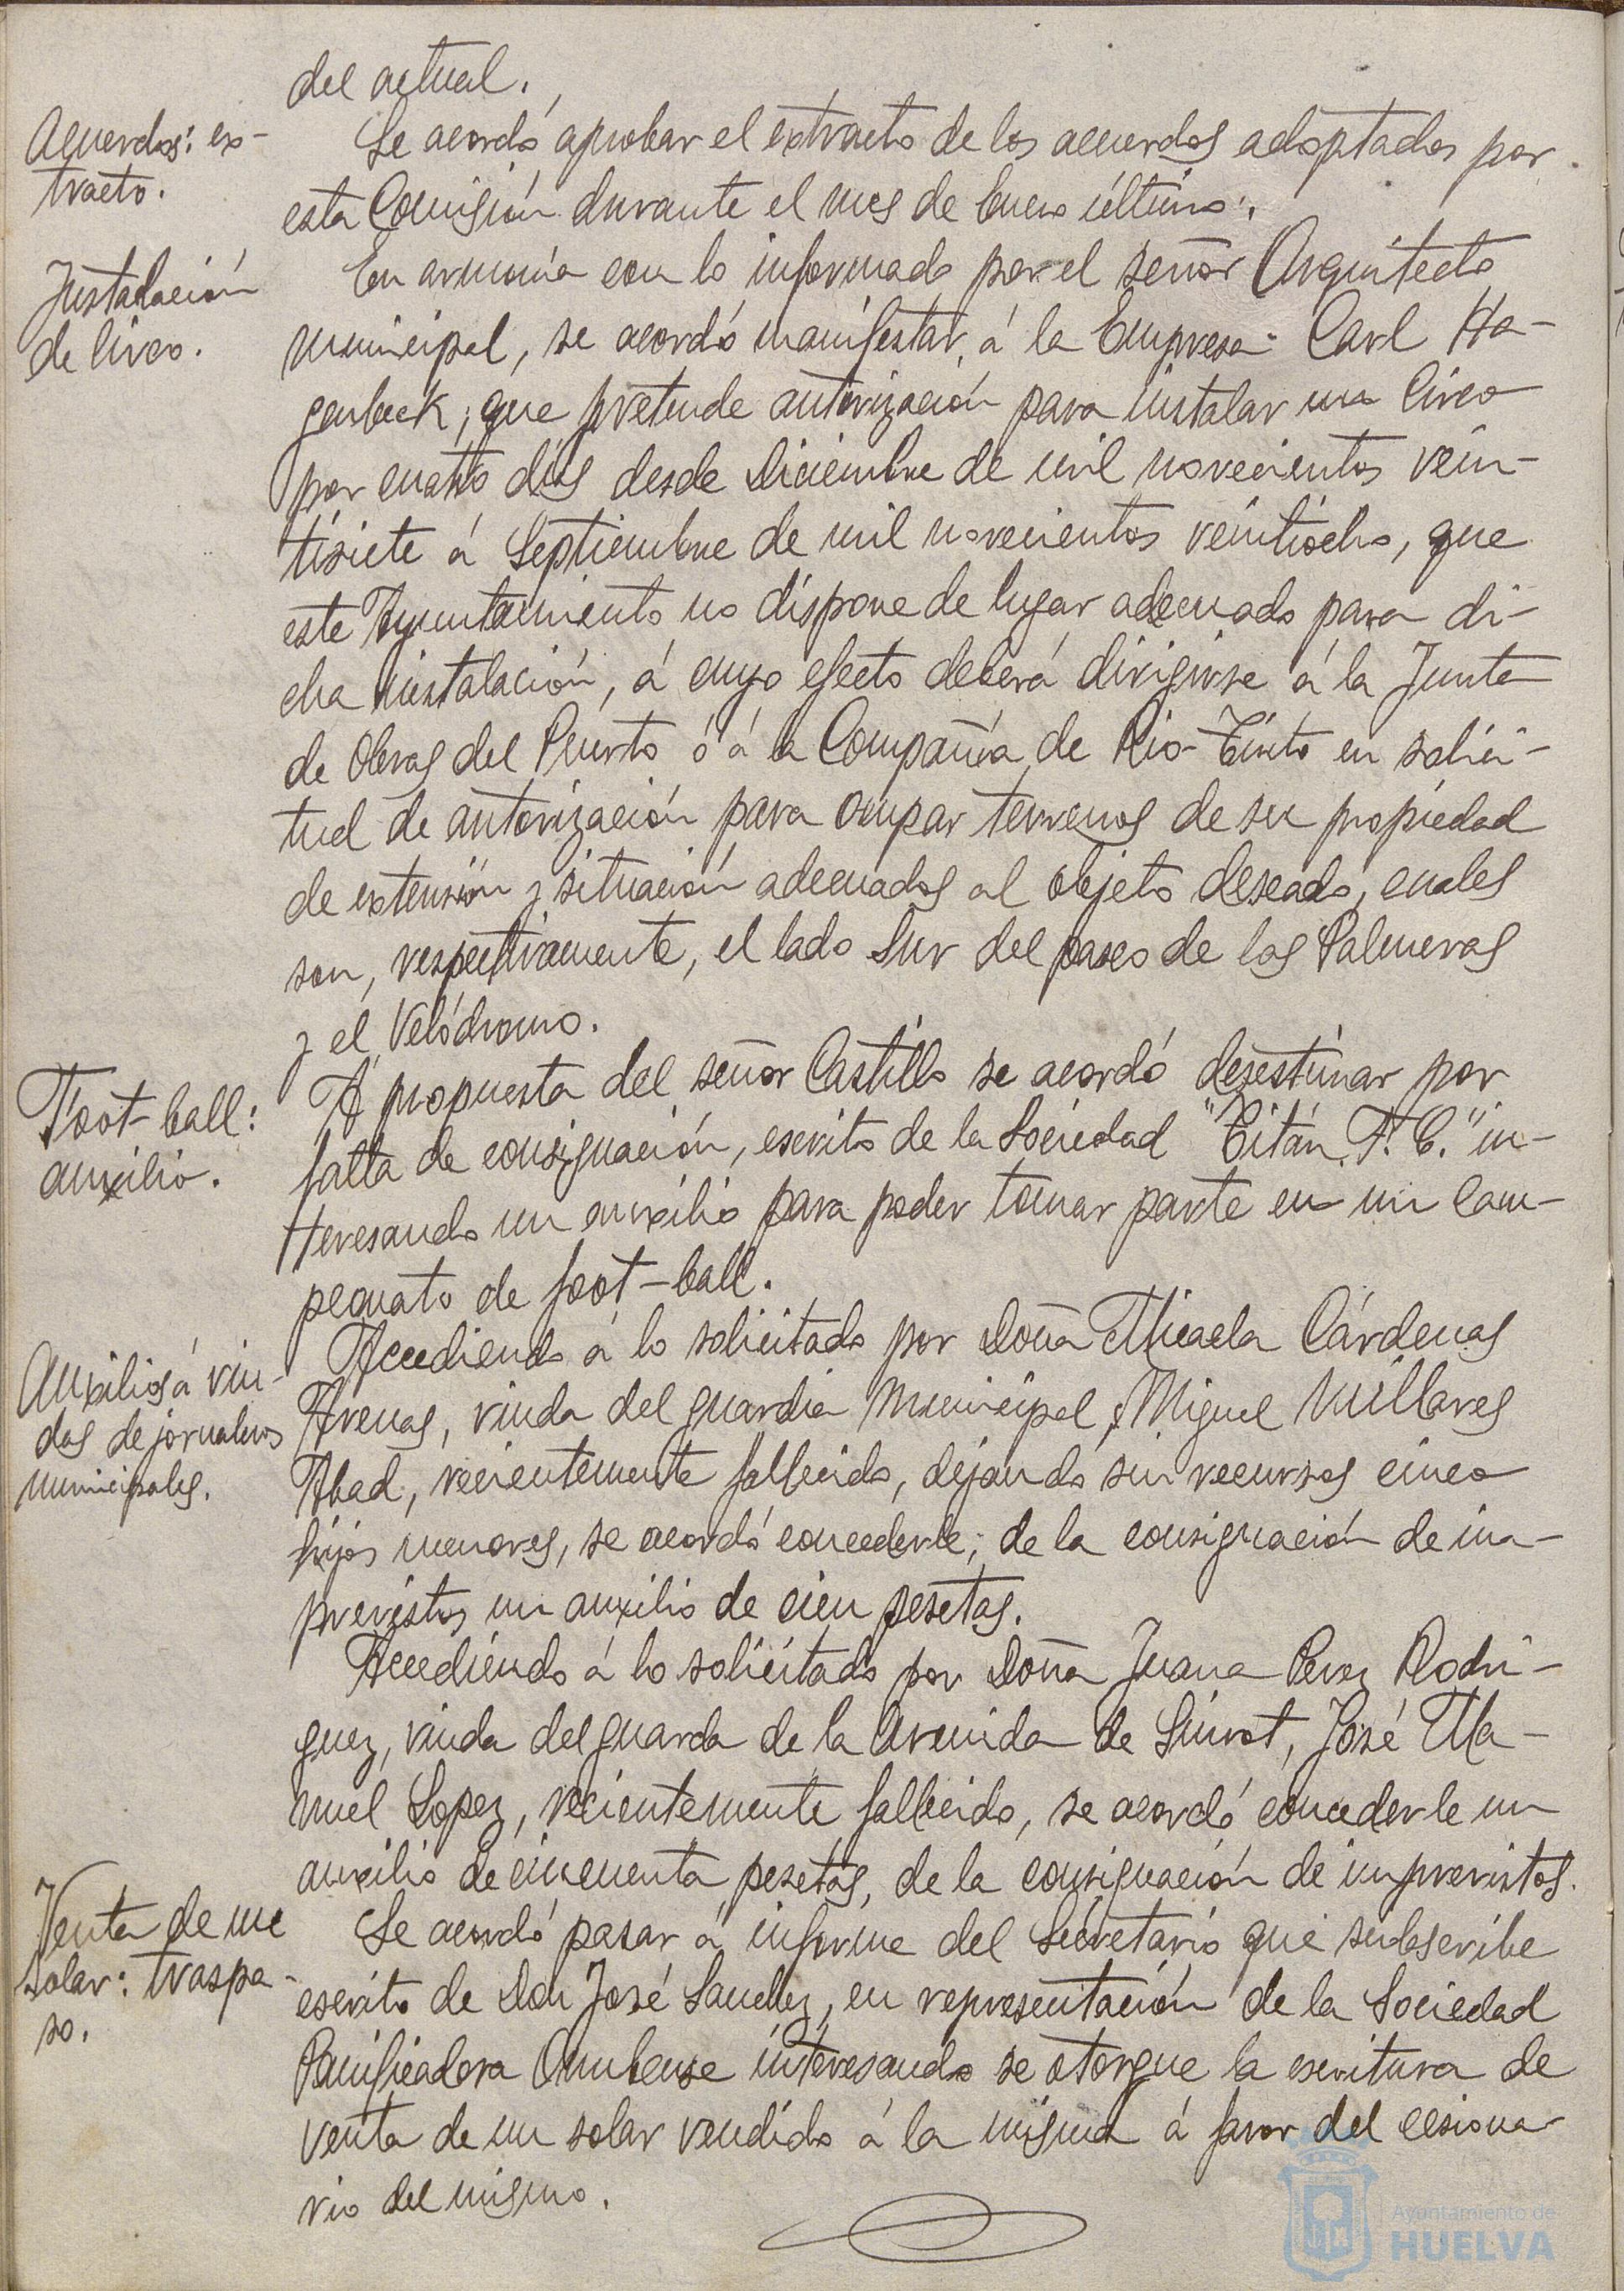 del actual.
Acuerdos: ex-
tracto.
Se acordó aprobar el extracto de los acuerdos adoptados por
esta Comisión durante el mes de Enero último.
Instalación
de Circo.
En armonía con lo informado por el señor Arquitecto
municipal, se acordó manifestar á la Empresa Carl Ha-
genbeck, que pretende autorización para instalar un Circo
por cuatro días desde Diciembre de mil novecientos vein-
tisiete á Septiembre de mil novecientos veintiocho, que
este Ayuntamiento no dispone de lugar adecuado para di-
cha instalación, á cuyo efecto deberá dirigirse á la Junta
de Obras del Puerto ó á la Compañía de Rio-Tinto en solici-
tud de autorización para ocupar terrenos de su propiedad
de extensión y situación adecuados al objeto deseado, cuales
son, respectivamente, el lado Sur del paseo de las Palmeras
y el Velódromo.
Foot-ball:
auxilio.
A propuesta del señor Castillo se acordó desestimar por
falta de consignación, escrito de la Sociedad "Titán F. C." in-
teresando un auxilio para poder tomar parte en un Cam-
peonato de foot-ball.
Auxilios á viu-
das de jornaleros
municipales.
Accediendo á lo solicitado por Doña Micaela Cárdenas
Arenas, viuda del guardia municipal, Miguel Millares
Abad, recientemente fallecido, dejando sin recursos cinco
hijos menores, se acordó concederle, de la consignación de im-
previstos un auxilio de cien pesetas.
Accediendo á lo solicitado por Doña Juana Perez Rodri-
guez, viuda del guarda de la Avenida de Siurot, José Ma-
nuel Lopez, recientemente fallecido, se acordó concederle un
auxilio de cincuenta pesetas, de la consignación de imprevistos.
Venta de un
solar: traspa-
so.
Se acordó pasar á informe del Secretario que subscribe
escrito de Don José Sanchez, en representación de la Sociedad
Panificadora Onubense interesando se otorgue la escritura de
venta de un solar vendido á la misma á favor del cesiona-
rio del mismo.
Ayuntamiento de
HUELVA